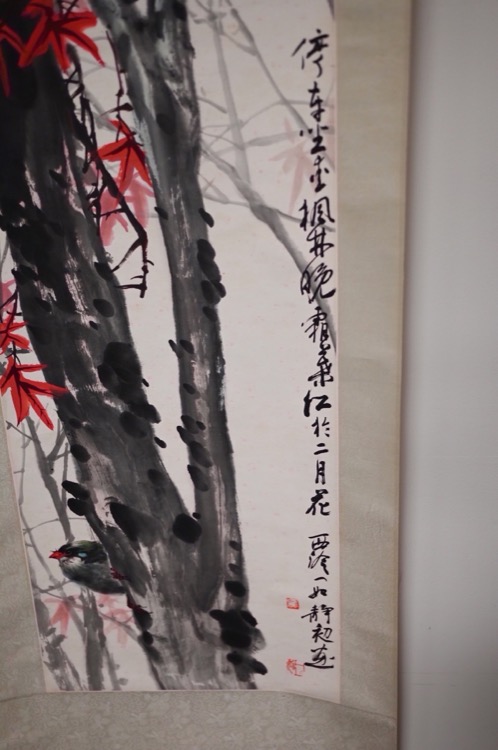 停车坐爱枫林晚霜叶红于二月花 西泠一如静初画